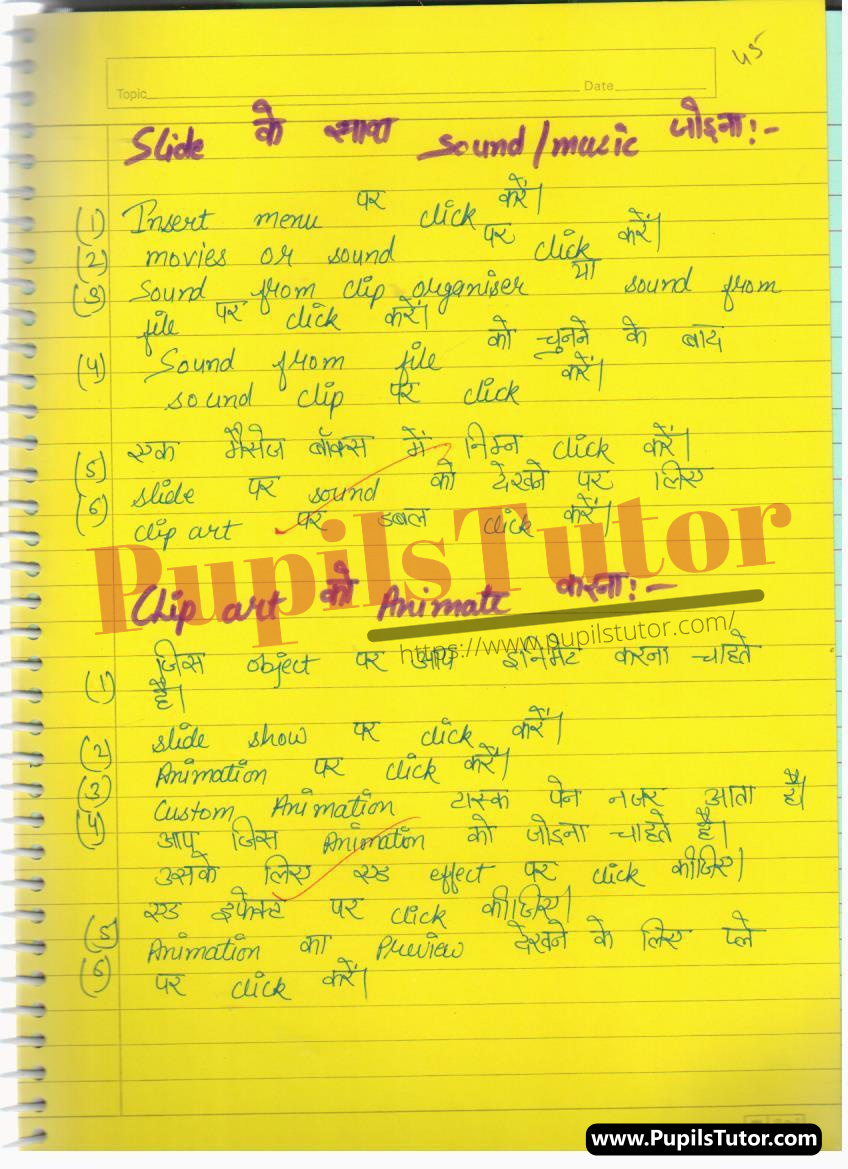 45
Topic
Date
Slide के साथ sound/music जोड़ना:-
(1) Insert menu पर click करें।
(2) movies or sound पर click करें।
(3) Sound from clip organiser या sound from
file पर click करें।
(4) Sound from file को चुनने के बाद
sound clip पर click करें।
(5) एक मैसेज बॉक्स में निम्न click करें।
(6) slide पर sound को देखने पर लिए
clip art पर डबल click करें।
PupilsTutor
Clip art को Animate करना:-
https://www.pupilstutor.com/
(1) जिस object पर आप इनिमेट करना चाहते
है।
(2) slide show पर click करें।
(3) Animation पर click करें।
(4) Custom Animation टास्क पेन नजर आता है।
आप जिस Animation को जोड़ना चाहते है।
उसके लिए एड effect पर click कीजिए।
(5) एड इफेक्ट पर click कीजिए।
(6) Animation का Preview देखने के लिए प्ले
पर click करें।
www.PupilsTutor.com